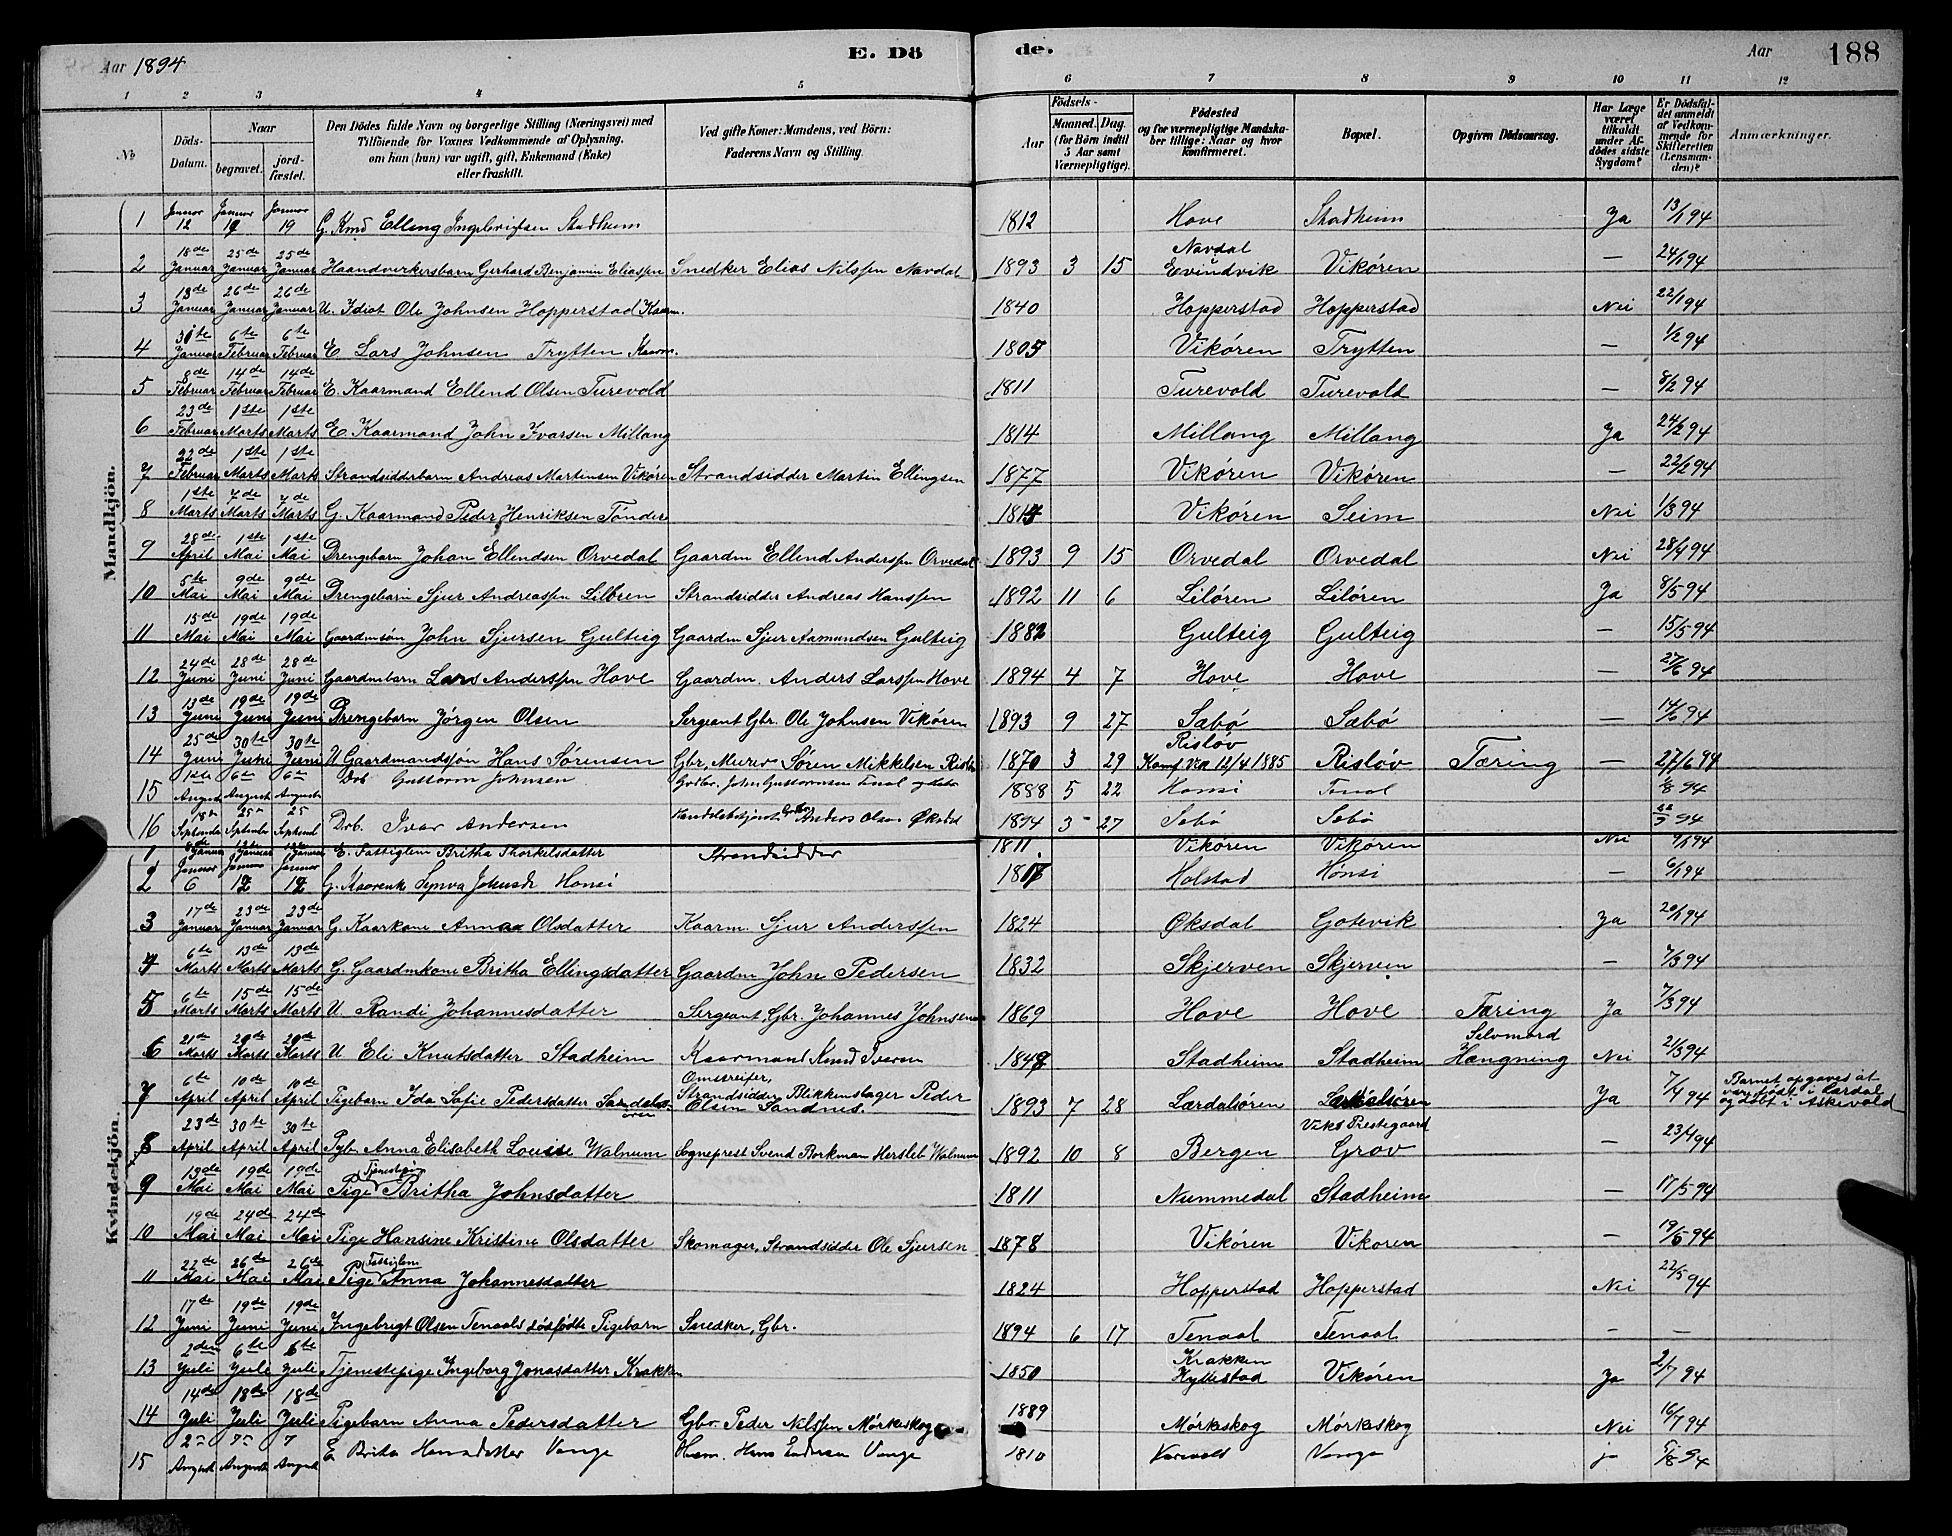 Aar 1894
E. Dö
de.
Aar
188
1 2 3 4 5 6 7 8 9 10 11 12
No
Döds-Datum.
Naar
begravet.
jord-fæstet.
Den Dödes fulde Navn og borgerlige Stilling (Næringsvei) med
Tilföiende for Voxnes Vedkommende af Oplysning,
om han (hun) var ugift, gift, Enkemand (Enke)
eller fraskilt.
Ved gifte Koner: Mandens, ved Börn:
Faderens Navn og Stilling.
Födsels-
Aar
Maaned. Dag.
(for Börn indtil
5 Aar samt
Værnepligtige).
Födested
og for værnepligtige Mandska-
ber tillige: Naar og hvor
konfirmeret.
Bopæl.
Opgiven Dödsaarsag.
Har Læge
været
tilkaldt
under Af-
dödes sidste
Sygdom?
Er Dödsfal-
det anmeldt
af Vedkom-
mende for
Skifteretten
(Lensman-
den)?
Anmærkninger.
Mandkjön.
1 Januar 12 Januar 19 Januar 19 G. Kmd Elling Ingebrigtsen Stadheim 1812 Hove Stadheim Ja 13/1 94
2 18de Januar 25de Januar 25de Januar Haandverkersbarn Gerhard Benjamin Eliassen Snedker Elias Nilssen Navdal 1893 3 15 Navdal Evindvik Vikören — 24/1 94
3 13de Januar 26de Januar 26de Januar U. Idiot Ole Johnsen Hopperstad Kaarm. 1840 Hopperstad Hopperstad Nei 22/1 94
4 30te Januar 6te Februar 6te Februar E Lars Johnsen Trytten Kaarm. 1805 Vikören Trytten — 1/2 94
5 8de Februar 14de Februar 14de Februar E. Kaarmand Ellend Olsen Turevold 1811 Turevold Turevold — 8/2 94
6 23de Februar 1ste Marts 1ste Marts E. Kaarmand John Ivarsen Millang 1814 Millang Millang Ja 24/2 94
7 22de Februar 1ste Marts 1ste Marts Strandsidderbarn Andreas Martinsen Vikören Strandsidder Martin Ellingsen 1877 Vikören Vikören — 22/2 94
8 1ste Marts 7de Marts 7de Marts G. Kaarmand Peder Henriksen Tönder Vikören Seim Nei 1/3 94
9 28de April 1ste Mai 1ste Mai Drengebarn Johan Ellendsen Orvedal Gaardm Ellend Anderssen Orvedal 1893 9 15 Orvedal Orvedal Nei 28/4 94
10 5te Mai 9de Mai 9de Mai Drengebarn Sjur Andreassen Lilören Strandsidder Andreas Hanssen 1892 11 6 Lilören Lilören Ja 8/5 94
11 15de Mai 19de Mai 19de Mai Gaardmsön John Sjursen Gulteig Gaardm Sjur Aamundsen Gulteig 1882 Gulteig Gulteig — 15/5 94
12 24de Juni 28de Juni 28de Juni Gaardmbarn Lars Anderssen Hove Gaardm. Anders Larssen Hove 1894 4 7 Hove Hove — 27/6 94
13 13de Juni 19de Juni 19de Juni Drengebarn Jörgen Olsen Sergeant Gbr. Ole Johnsen Vikören 1893 9 27 Sæbö Sæbö — 14/6 94
14 25de Juni 30te Juni 30te Juni U Gaardmandssön Hans Sörensen Gbr, Murer Sören Mikkelsen Risløv 1870 3 29 Risløv Konf. Vik 12/4 1885 Risløv Tæring — 27/6 94
15 1ste August 6te August 6te August Drb Guttorm Johnsen Grdbr. John Guttormsen 1888 5 22 Hönsi 94
16 18de September 25 September 25 Septembr Drb. Ivar Andersen Anders Olsen Öksdal 1894 3 27 Sebö Sebö 94
Kvindekjön.
1 8de Januar Januar Januar E. Fattiglem Britha Thorkelsdatter Strandsidder 1811 Vikören Vikören Nei 9/1 94
2 Januar 6 Januar 12 Januar 12 G. Kaarenk Synva Johnsdr Hönsi Holstad Hönsi — 6/1 94
3 17de Januar 23de Januar 23de Januar G. Kaarkone Anna Olsdatter Kaarm. Sjur Anderssen 1824 Öksdal Gotevik Ja 20/1 94
4 6te Marts 13de Marts 13de Marts G. Gaardmkone Britha Ellingsdatter Gaardm John Pedersen 1832 Skjerven Skjerven — 7/3 94
5 6te Marts 15de Marts 15de Marts U Randi Johannesdatter Sergeant, Gbr. Johannes Johnsen 1869 Hove Hove Tæring Ja 7/3 94
6 21de Marts 29de Marts 29de Marts U Eli Knutsdatter Stadheim Kaarmand Knud Iversen 1848 Stadheim Stadheim Selvmord Hængning Nei 21/3 94
7 6te April 10de April 10de April Pigebarn Ida Sofie Pedersdatter Omstreifer, Strandsidder, Blikkenslager Peder Olsen Sandnes. 1893 7 28 Lærdalsören Lærdalsören Ja 7/4 94 Barnet opgaves at var födt i Lærdal og döbt i Askevold
8 23de April 30te April 30te April Pgb. Anna Elisabeth Louise Walnum Sogneprest Svend Borkman Hersleb Walnum 1892 10 8 Bergen Viks Prestegaard Grov — 23/4 94
9 13de Mai 19de Mai 19de Mai Pige Tjenestpig Britha Johnsdatter 1811 Nummedal Stadheim — 17/5 94
10 19de Mai 24de Mai 24de Mai Pige Hansine Kristine Olsdatter Skomager, Strandsidder Ole Sjursen 1878 Vikören Vikoren — 19/5 94
11 22de Mai 26de Mai 26de Mai Pige Fattiglem Anna Johannesdatter 1824 Hopperstad Hopperstad Nei 22/5 94
12 17de Juni 19de Juni 19de Juni Ingebrigt Olsen Tenaals dödfödte Pigebarn Snedker, Gbr. 1894 6 17 Tenaal Tenaal — —
13 2den Juli 6te Juli 6te Juli Tjenestepige Ingeborg Jonasdatter Krakken 1850 Krakken Hyllestad Vikören Ja 2/7 94
14 14de Juli 18de Juli 18de Juli Pigebarn Anna Pedersdatter Gbr. Peder Nilssen Mörkeskog 1889 Mörkskog Mörkskog Nei 16/7 94
15 2 August 7 August 7 August E Brita Hansdatter Vange Hans Endresen Vange 1810 Vange ja 5/8 94